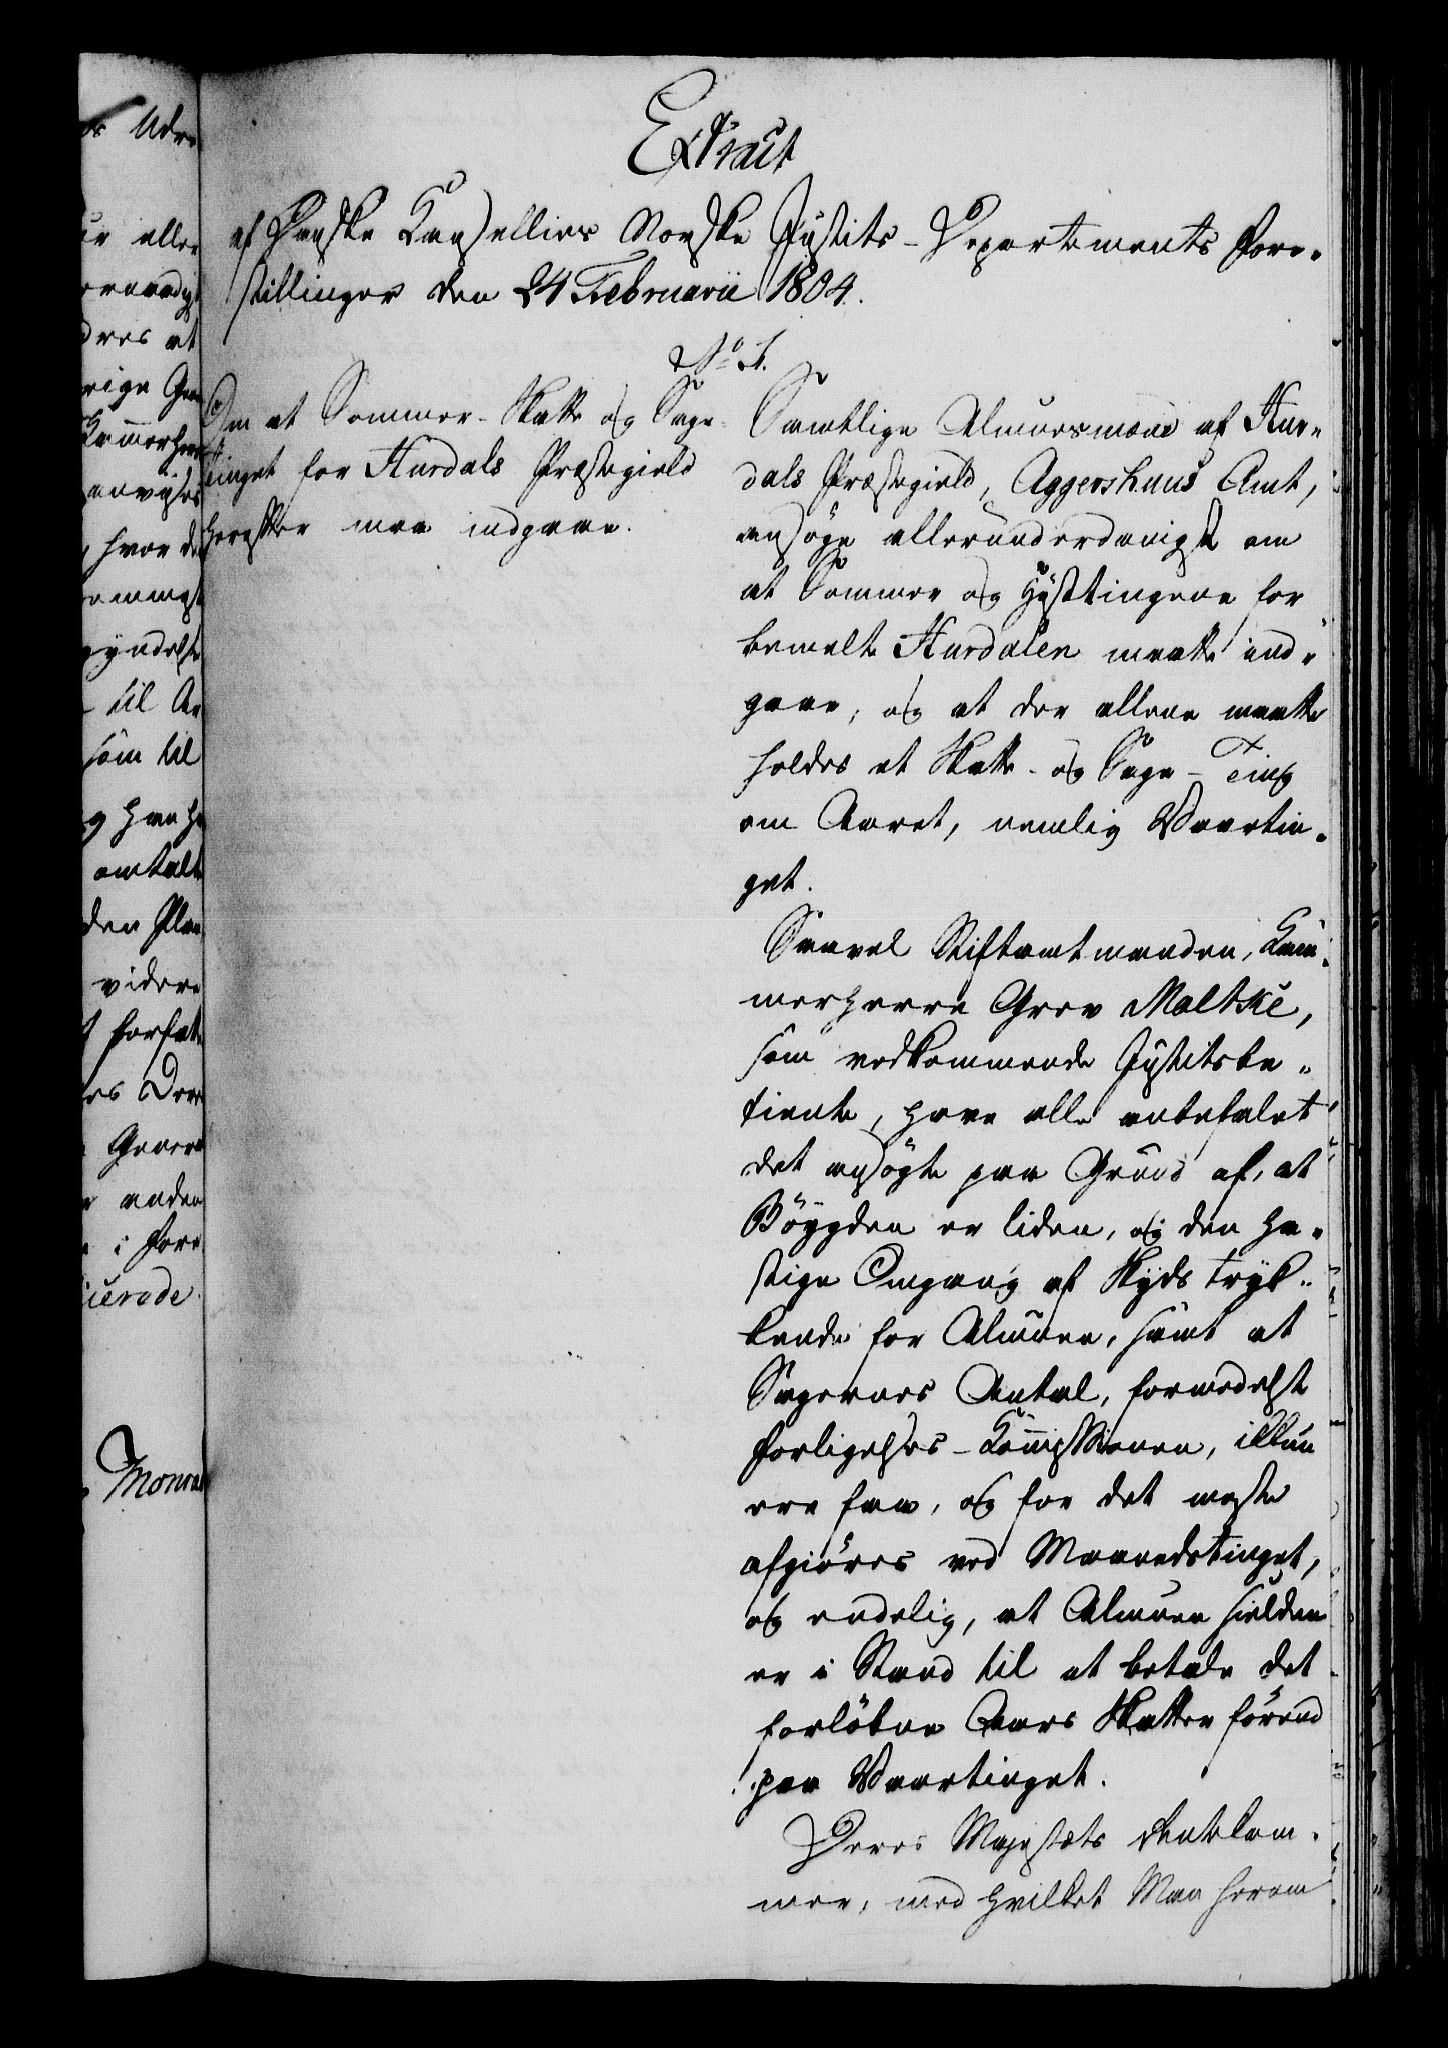 Extract
af Danske Cancellies Norske Justits-Departements Fore-
stillinger den 24 Februarii 1804.
No 1.
Om at Sommer-Skatte og Sage-
tinget for Hurdals Præstegield
herefter maa indgaae.
Samtlige Almuesmænd af Hur-
dals Præstegield, Aggershuus Amt,
ansøge allerunderdanigst om
at Sommer og Høsttingene for
bemelte Hurdalen maatte ind-
gaae, og at der allene maatte
holdes et Skatte- og Sage-Ting
om Aaret, nemlig Vaartin-
get.
Saavel Stiftamtmanden, Kam-
merherre Grev Moltke,
som vedkommende Justitsbe-
tiente, have alle anbefalet
det ansøgte paa Grund af, at
Bøygden er liden, og den ha-
stige Omgang af Skyds tryk-
kende for Almuen, samt at
Sagernes Antal, formedelst
Forligelses-Commissionen, ikkun
ere faa, og for det meste
afgiøres ved Maanedstinget,
og endelig, at Almuen sielden
er i Stand til at betale det
forløbne Aars Skatter førend
paa Vaartinget.
Deres Majestæts Rentekam-
mer, med hvilket Man herom
os Udre
ller
dres at
rige
Kammerher
anvises
hvor de
gyndelse
til Ar
som til
omtalte
den Plan
videre
forfatt
anden
i Fore
Monrad